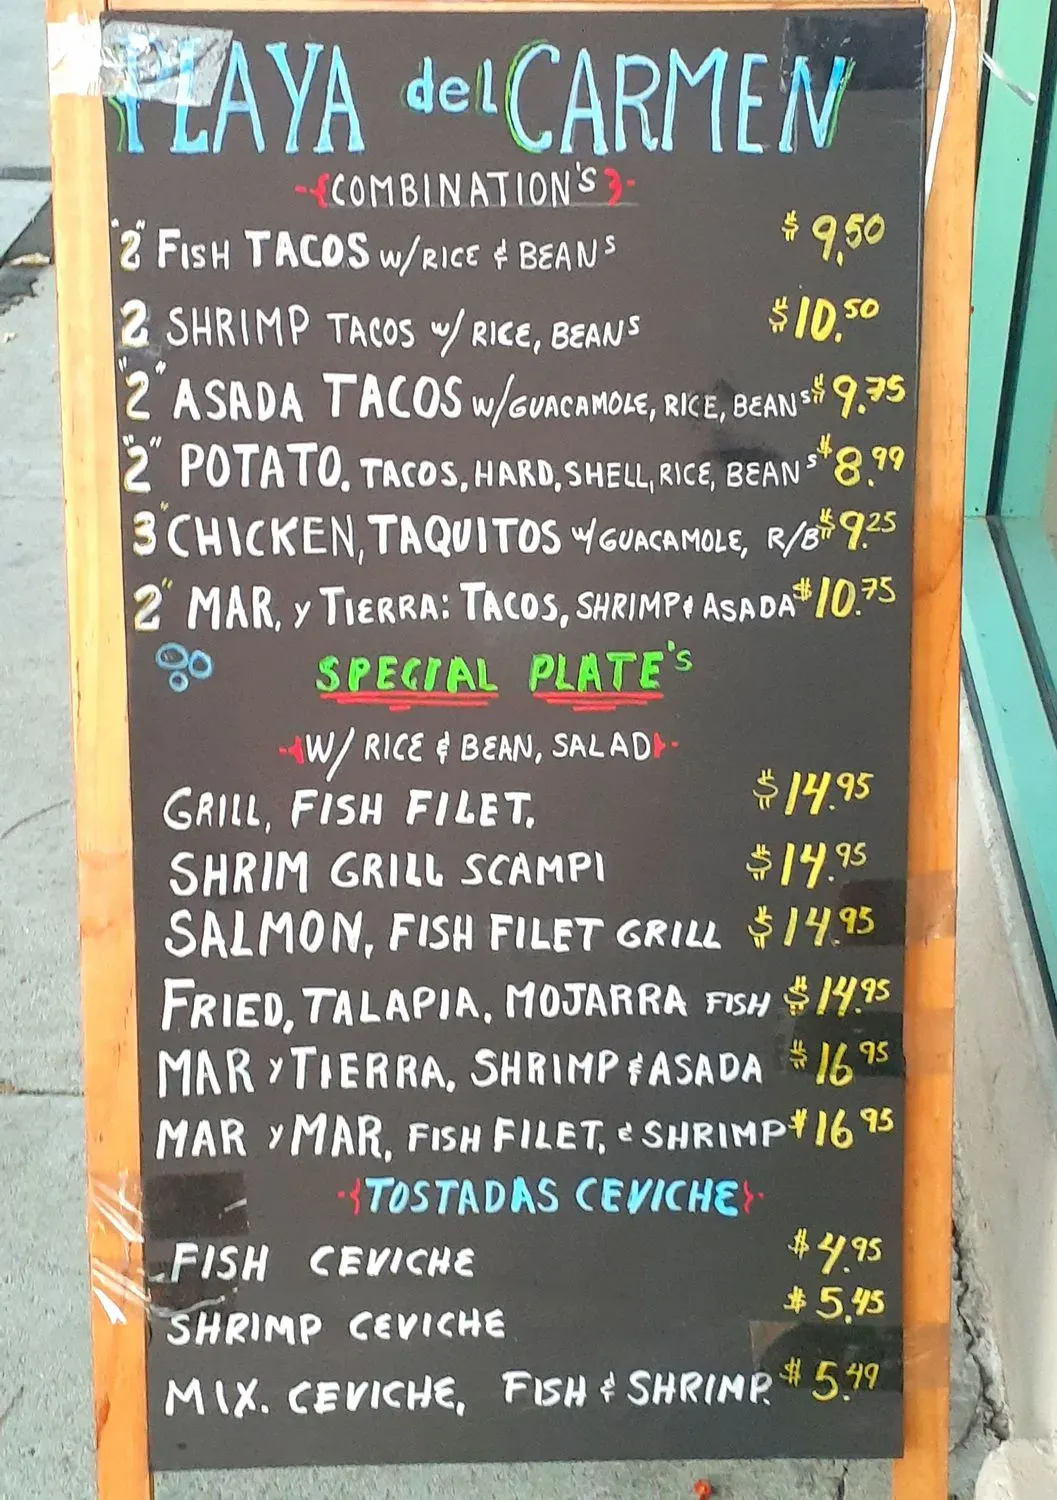 PLAYA del CARMEN
COMBINATION'S
"2" FISH TACOS W/RICE & BEANS $9.50
2 SHRIMP TACOS W/ RICE, BEANS $10.50
"2" ASADA TACOS W/GUACAMOLE, RICE, BEANS $9.75
"2" POTATO. TACOS, HARD, SHELL, RICE, BEANS $8.99
3" CHICKEN, TAQUITOS W/GUACAMOLE, R/B $9.25
2" MAR, y TIERRA: TACOS, SHRIMP & ASADA $10.75
SPECIAL PLATE'S
W/ RICE & BEAN, SALAD
GRILL, FISH FILET. $14.95
SHRIM GRILL SCAMPI $14.95
SALMON, FISH FILET GRILL $14.95
FRIED, TALAPIA, MOJARRA FISH $14.95
MAR y TIERRA, SHRIMP & ASADA $16 95
MAR y MAR, FISH FILET, & SHRIMP $16 95
TOSTADAS CEVICHE
FISH CEVICHE $4.95
SHRIMP CEVICHE $5.45
MIX. CEVICHE, FISH & SHRIMP. $5.49